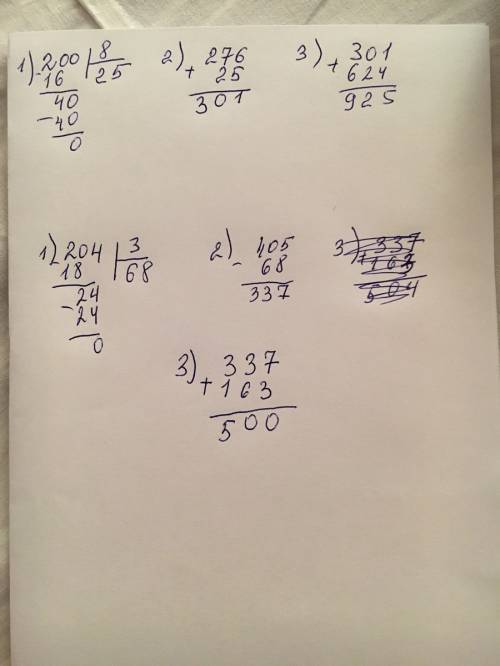 1) 200 | 8
- 16 | 25
40
- 40
0
2) 276
+ 25
301
3) 301
+ 624
925
1) 204 | 3
- 18 | 68
24
- 24
0
2) 405
- 68
337
3) 337
+ 163
504
3) 337
+ 163
500